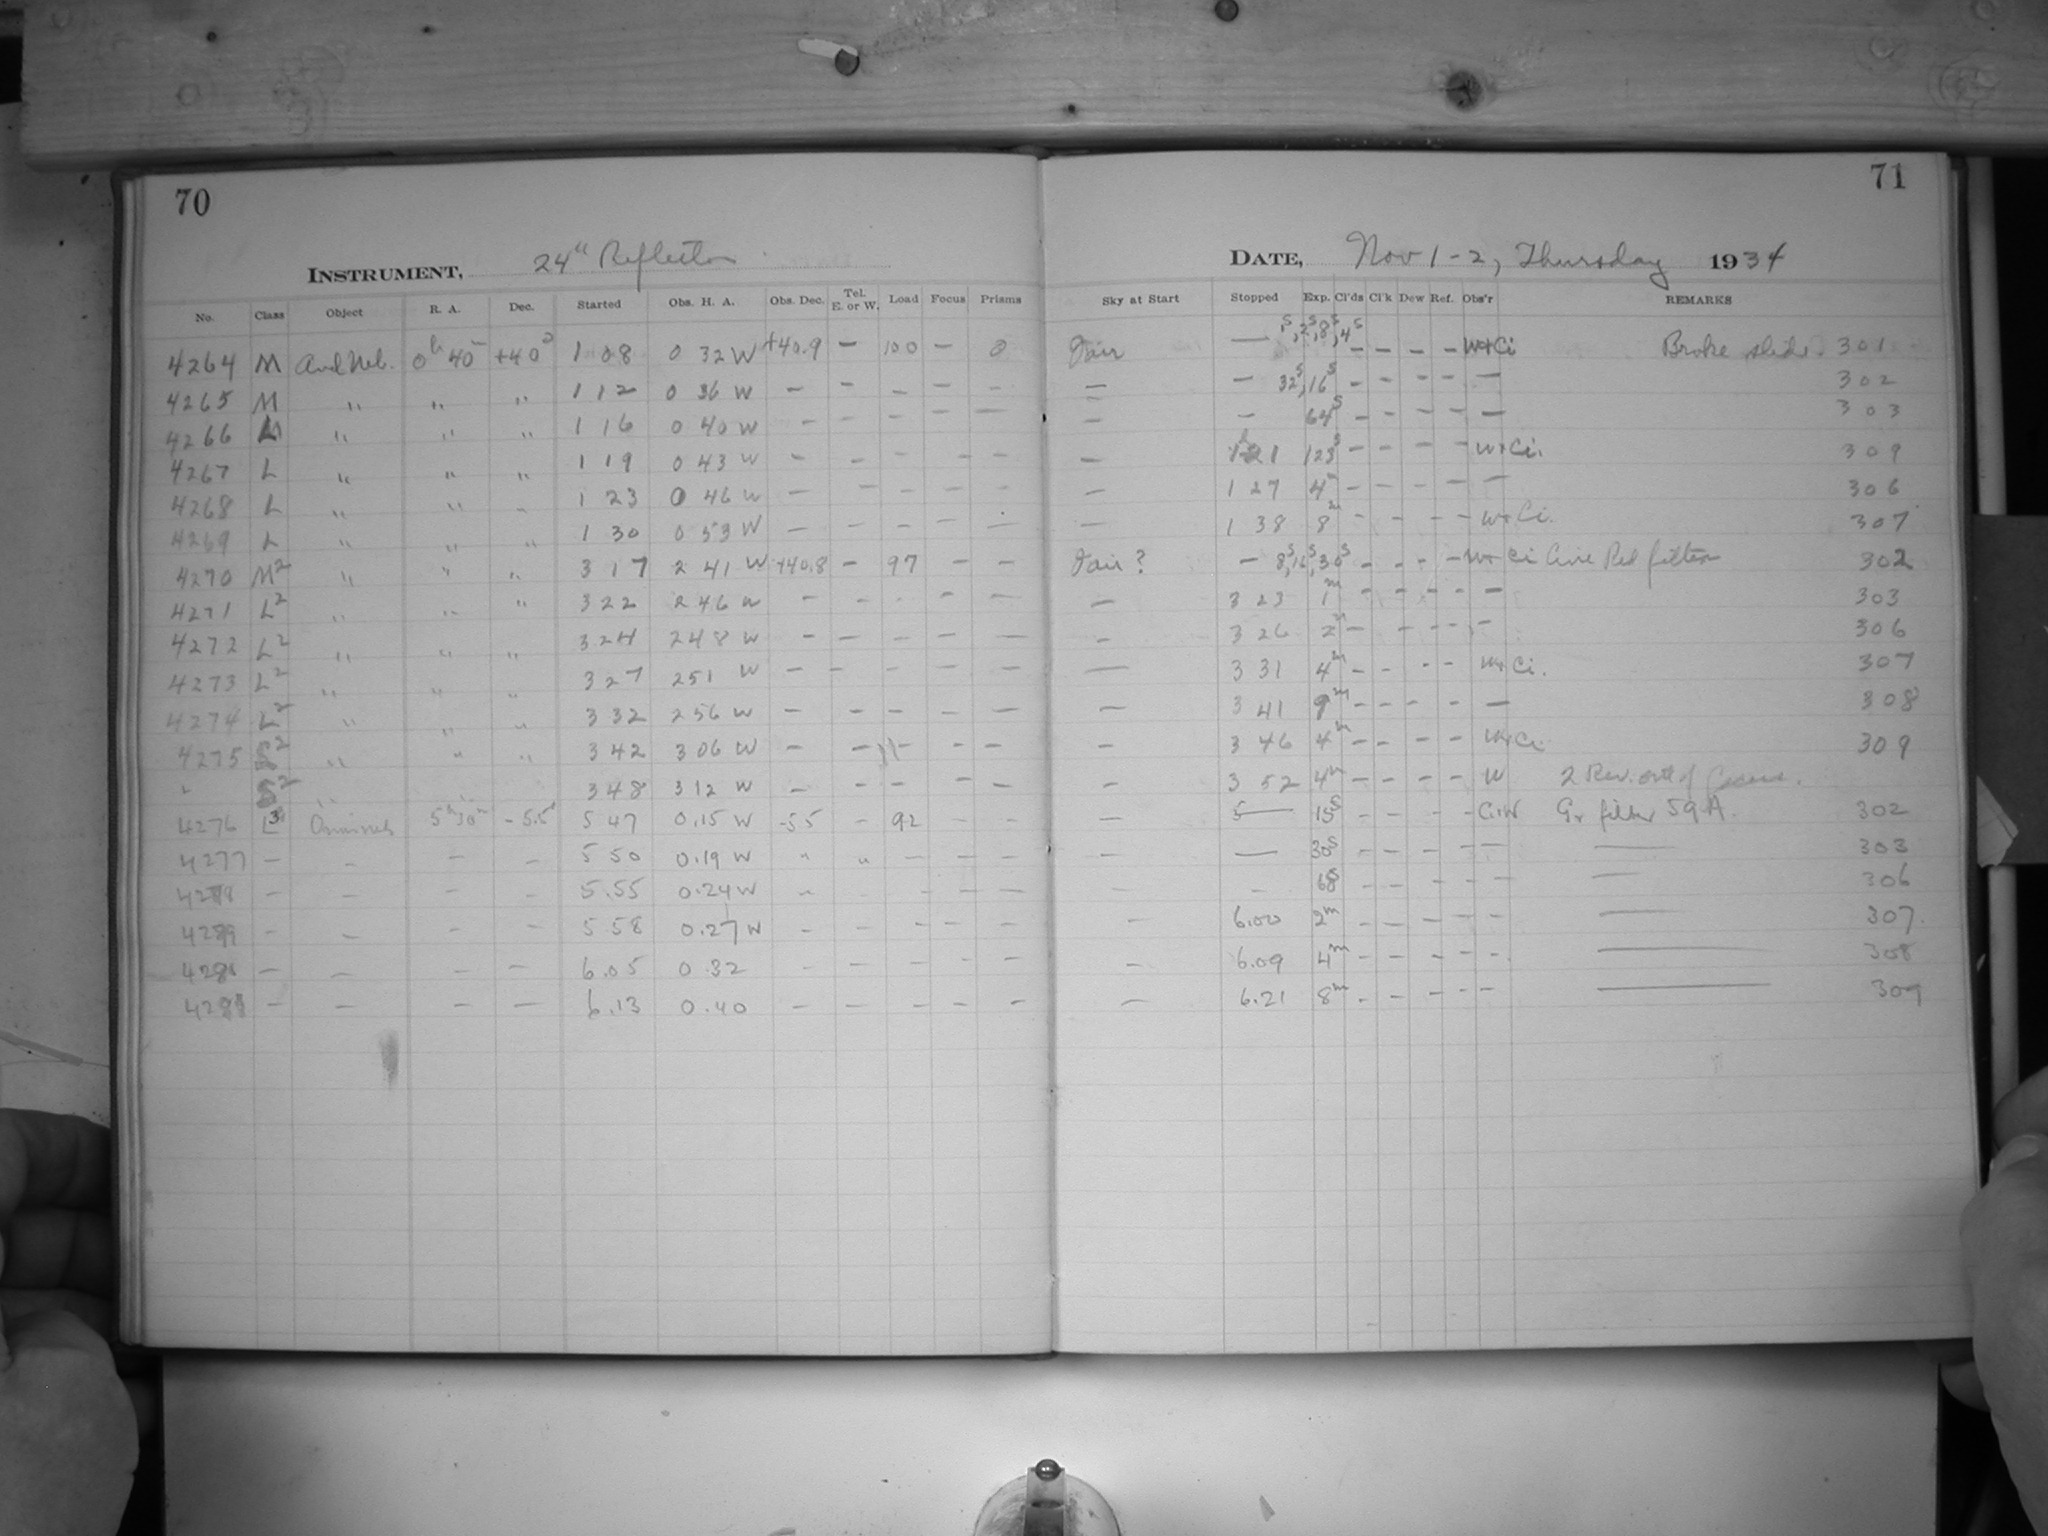 70
71
INSTRUMENT, 24" Reflector
DATE, Nov 1-2, Thursday 1934
No. Class Object R. A. Dec. Started Obs. H. A. Obs. Dec. Tel. E. or W. Load Focus Prisms Sky at Start Stopped Exp. Cl'ds Cl'k Dew Ref. Obs'r REMARKS
4264 M And Neb. 0h 40m +40° 1 08 0 32 W +40.9 — 100 — 0 Fair — 1s, 2s, 8s, 4s — — — — W+Ci Broke slide. 301
4265 M " " " 1 12 0 36 W — — — — — — — 32s, 16s — — — — — 302
4266 M " " " 1 16 0 40 W — — — — — — — 64s — — — — — 303
4267 L " " " 1 19 0 43 W — — — — — — 1 21 123s — — — — W+Ci. 309
4268 L " " " 1 23 0 46 W — — — — — — 1 27 4m — — — — — 306
4269 L " " " 1 30 0 53 W — — — — — — 1 38 8m — — — — W+Ci. 307
4270 M2 " " " 3 17 2 41 W +40.8 — 97 — — Fair? — 8s, 16s, 30s — — — — W+Ci Cine Red filter 302
4271 L2 " " " 3 22 2 46 W — — — — — — 3 23 1m — — — — — 303
4272 L2 " " " 3 24 2 48 W — — — — — — 3 26 2m — — — — — 306
4273 L2 " " " 3 27 2 51 W — — — — — — 3 31 4m — — — — W+Ci. 307
4274 L2 " " " 3 32 2 56 W — — — — — — 3 41 9m — — — — — 308
4275 S2 " " " 3 42 3 06 W — — — — — — 3 46 4m — — — — W+Ci 309
" S2 " 3 48 3 12 W — — — — — — 3 52 4m — — — — W 2 Rev. out of
4276 L3 5h 30m -5.5° 5 47 0.15 W -55 — 92 — — 15s — — — — C+W Gr filter 59A. 302
4277 — — — — 5 50 0.19 W " " — — — — — 30s — — — — — — 303
— — — — 5.55 0.24 W " — — — — — — — — — — — 306
— — — — 5 58 0.27 W — — — — — — 6.00 2m — — — — — — 307.
— — — — 6.05 0.32 — — — — — — 6.09 4m — — — — — — 308
— — — — 6.13 0.40 — — — — — — 6.21 8m — — — — — — 309